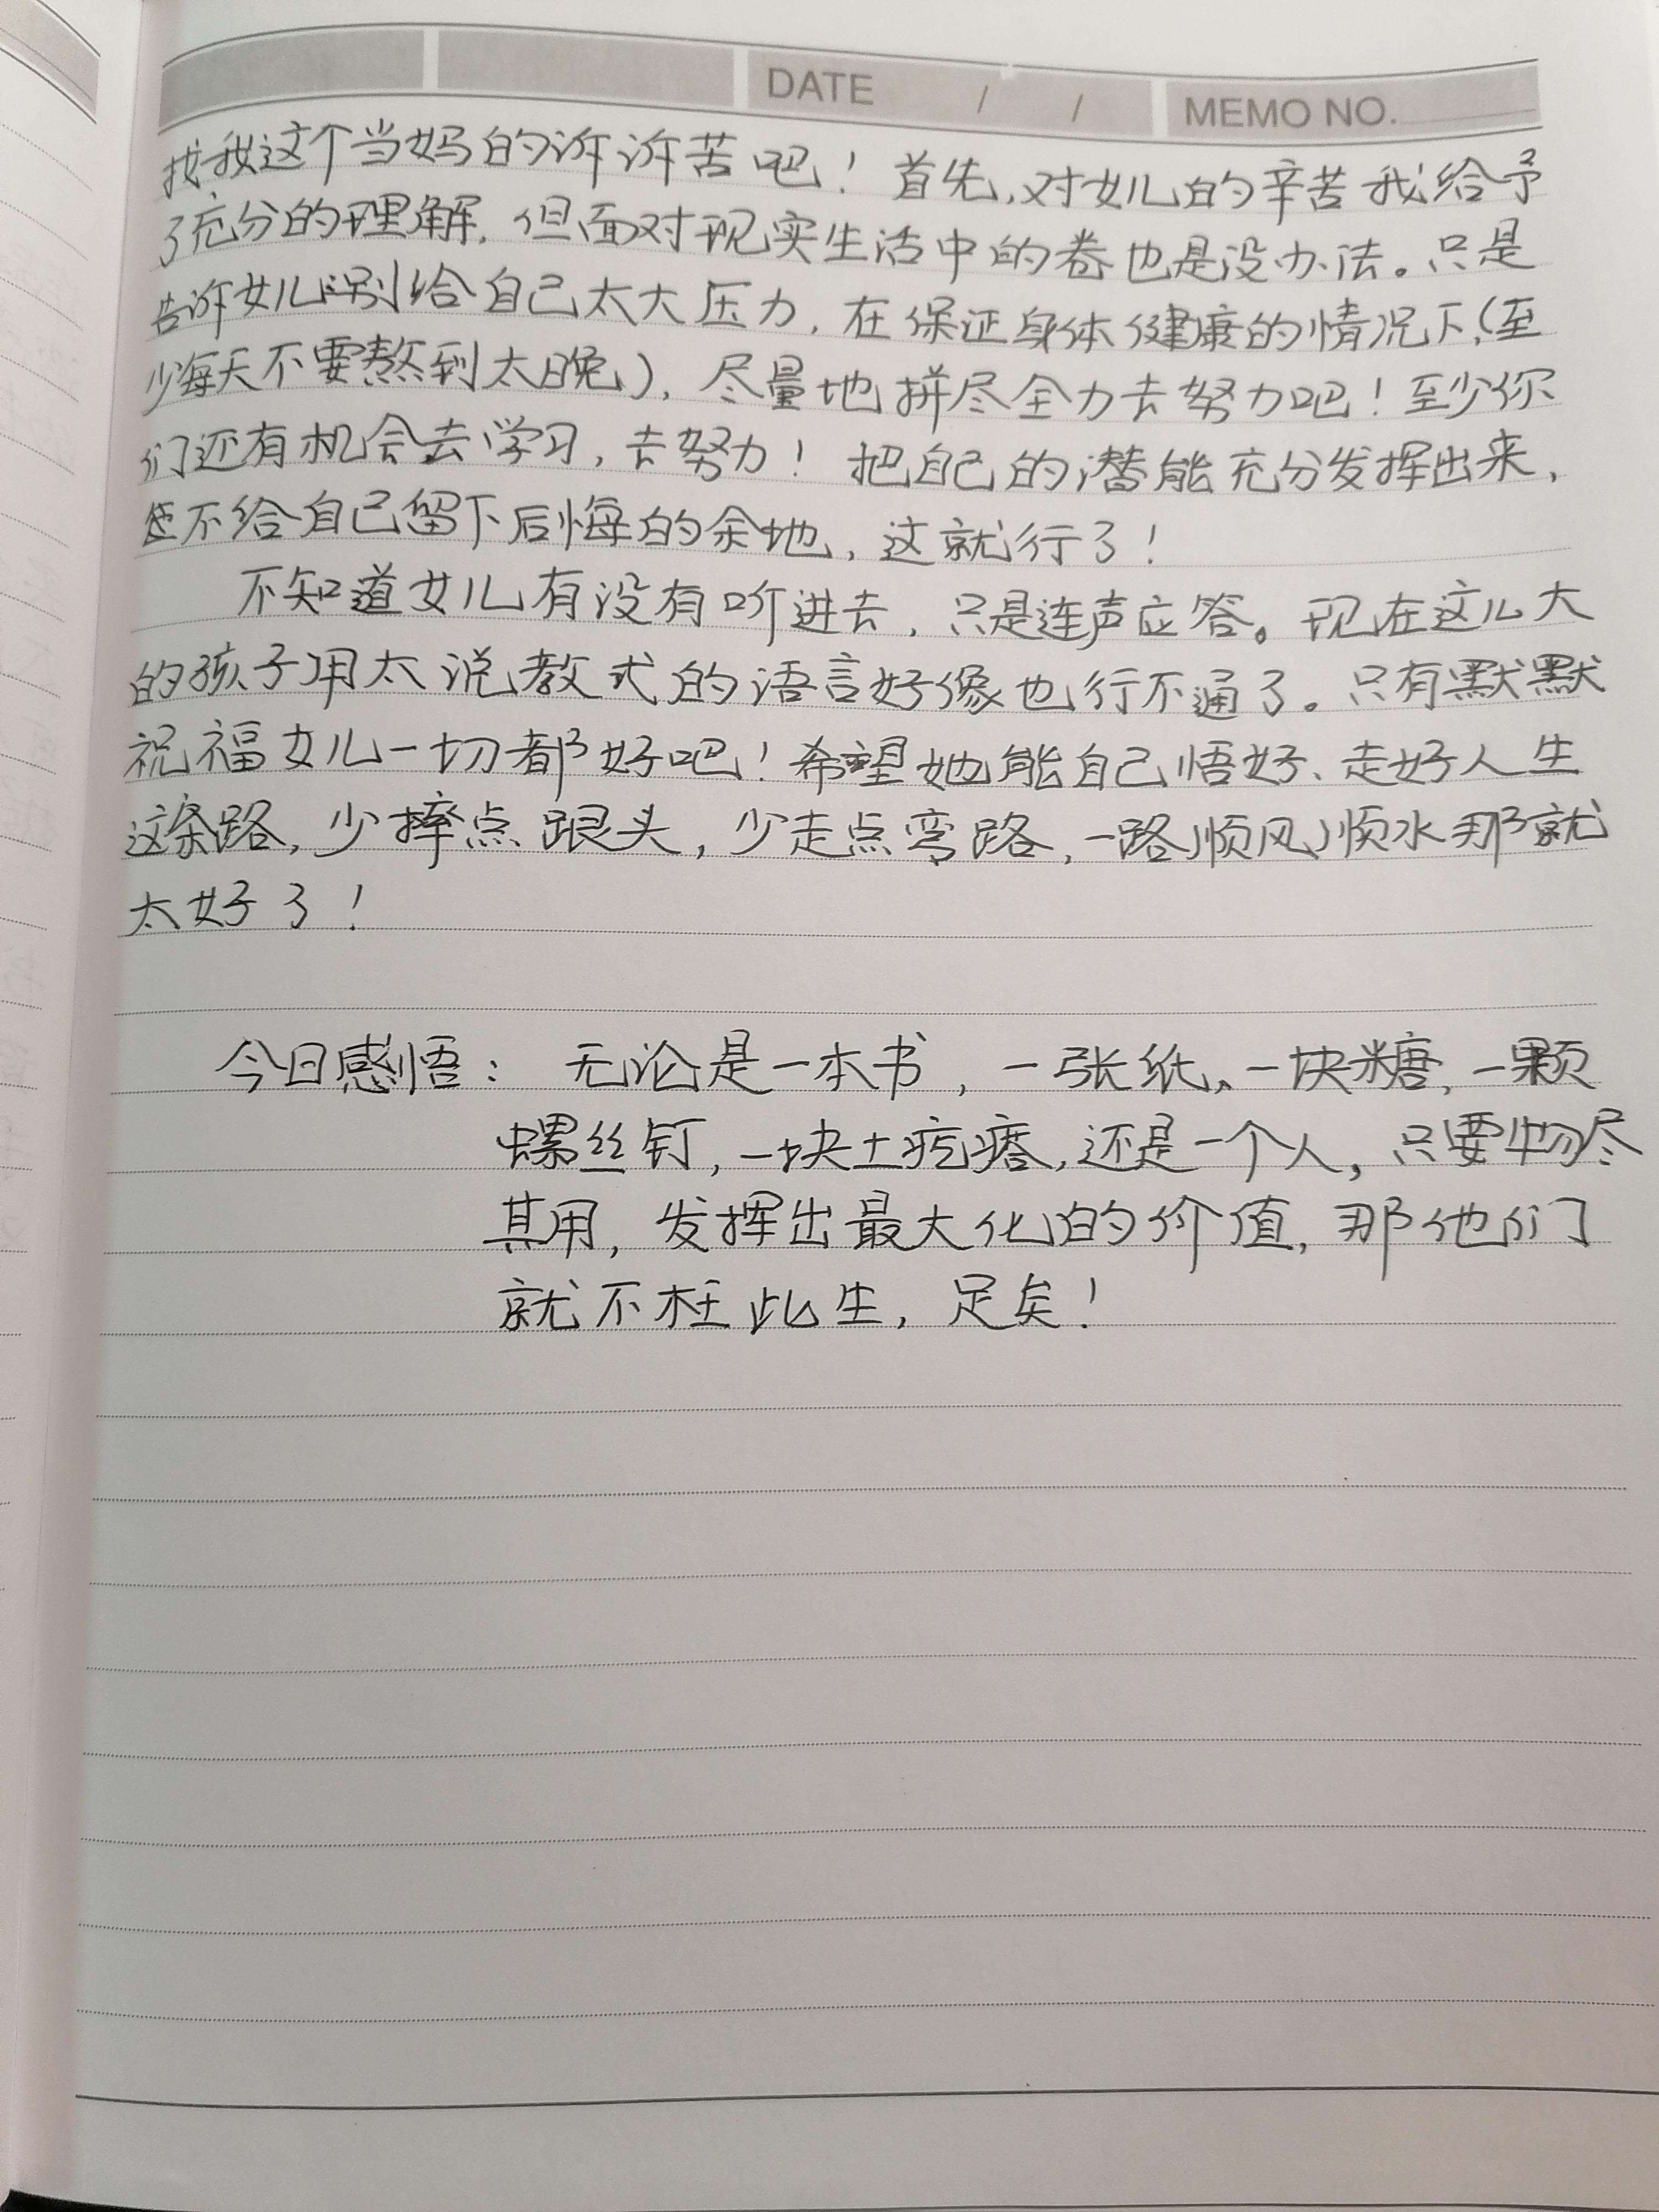 DATE / / MEMO NO.
找我这个当妈的诉诉苦吧！首先，对女儿的辛苦我给予
了充分的理解，但面对现实生活中的卷也是没办法。只是
告诉女儿别给自己太大压力，在保证身体健康的情况下，（至
少每天不要熬到太晚），尽量地拼尽全力去努力吧！至少你
们还有机会去学习，去努力！把自己的潜能充分发挥出来，
不给自己留下后悔的余地，这就行了！
不知道女儿有没有听进去，只是连声应答。现在这么大
的孩子用太说教式的语言好像也行不通了。只有默默
祝福女儿一切都好吧！希望她能自己悟好、走好人生
这条路，少摔点跟头，少走点弯路，一路顺风顺水那就
太好了！
今日感悟：无论是一本书，一张纸、一块糖，一颗
螺丝钉，一块土疙瘩，还是一个人，只要物尽
其用，发挥出最大化的价值，那他们
就不枉此生，足矣！